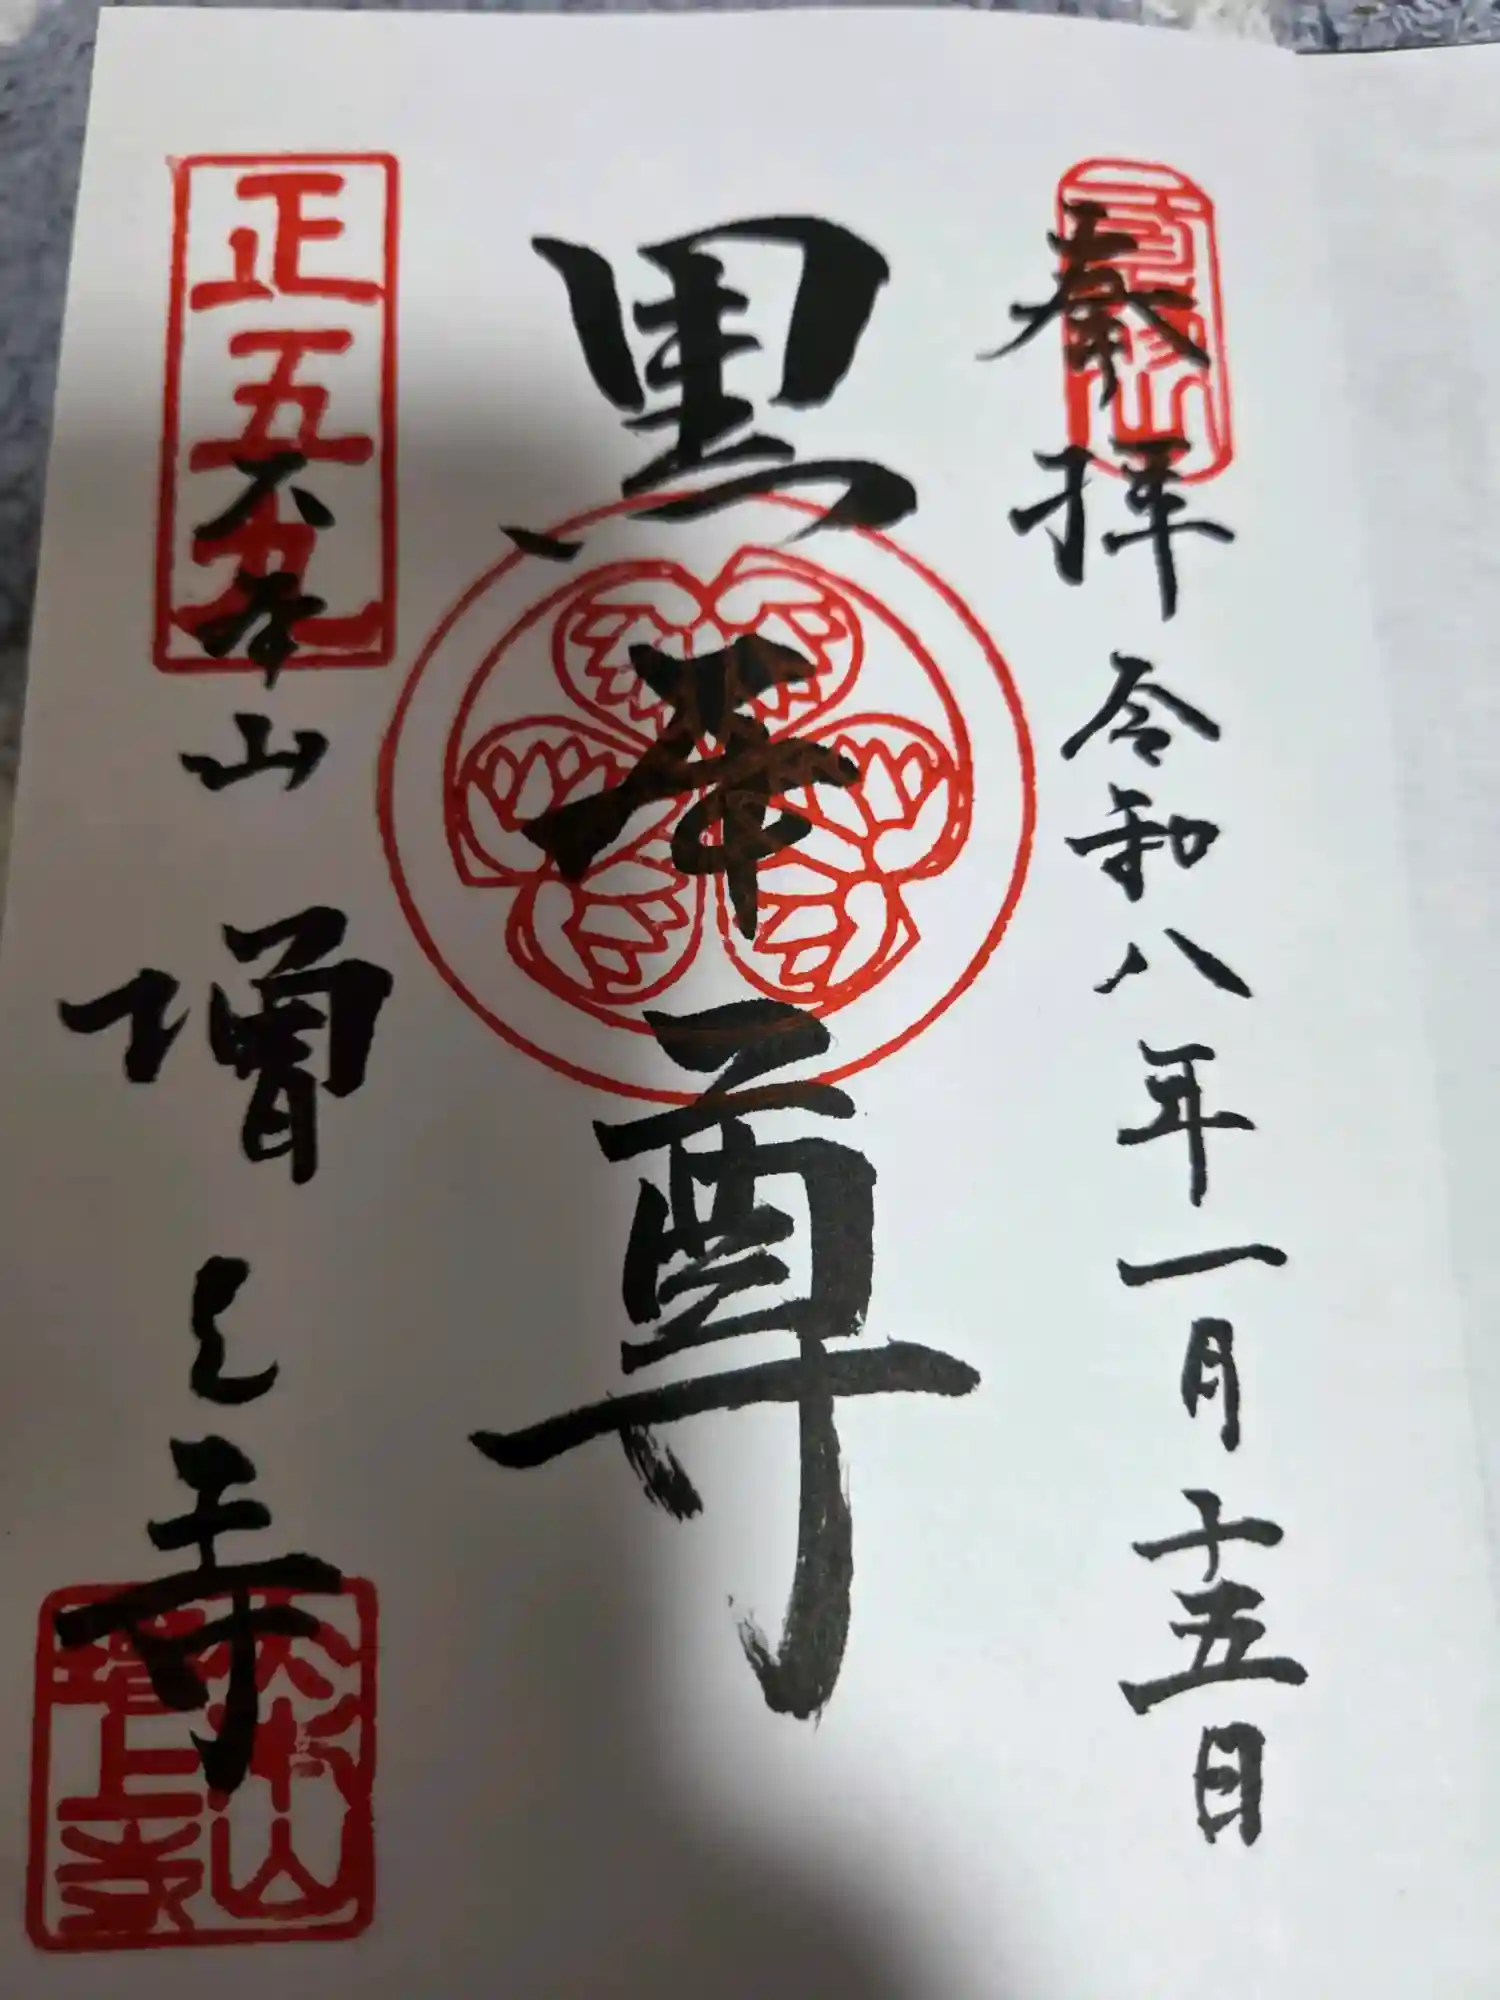 奉拝 令和八年一月十五日
黒本尊
正五九
大本山 増上寺
大本山
増上寺